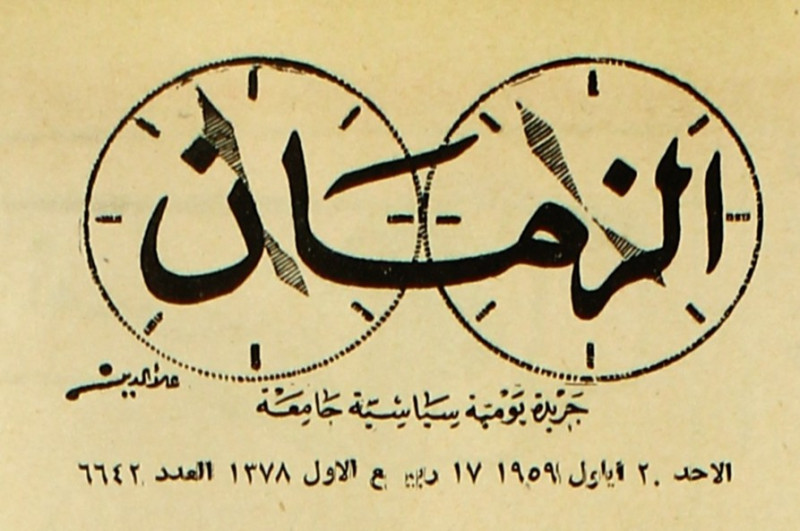 الزمان
جريدة يومية سياسية جامعة
الاحد ٢٠ ايلول ١٩٥٩ ١٧ ربيع الاول ١٣٧٨ العدد ٦٦٤٢